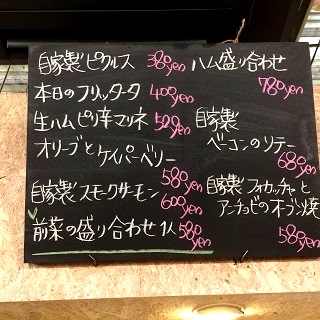 自家製ピクルス 380yen
本日のフリッタータ 400yen
生ハムピリ辛マリネ 500yen
オリーブとケイパーベリー 580yen
自家製スモークサーモン 600yen
前菜の盛り合わせ 1人 580yen
ハム盛り合わせ 780yen
自家製
ベーコンのソテー 680yen
自家製フォカッチャと
アンチョビのオーブン焼 580yen